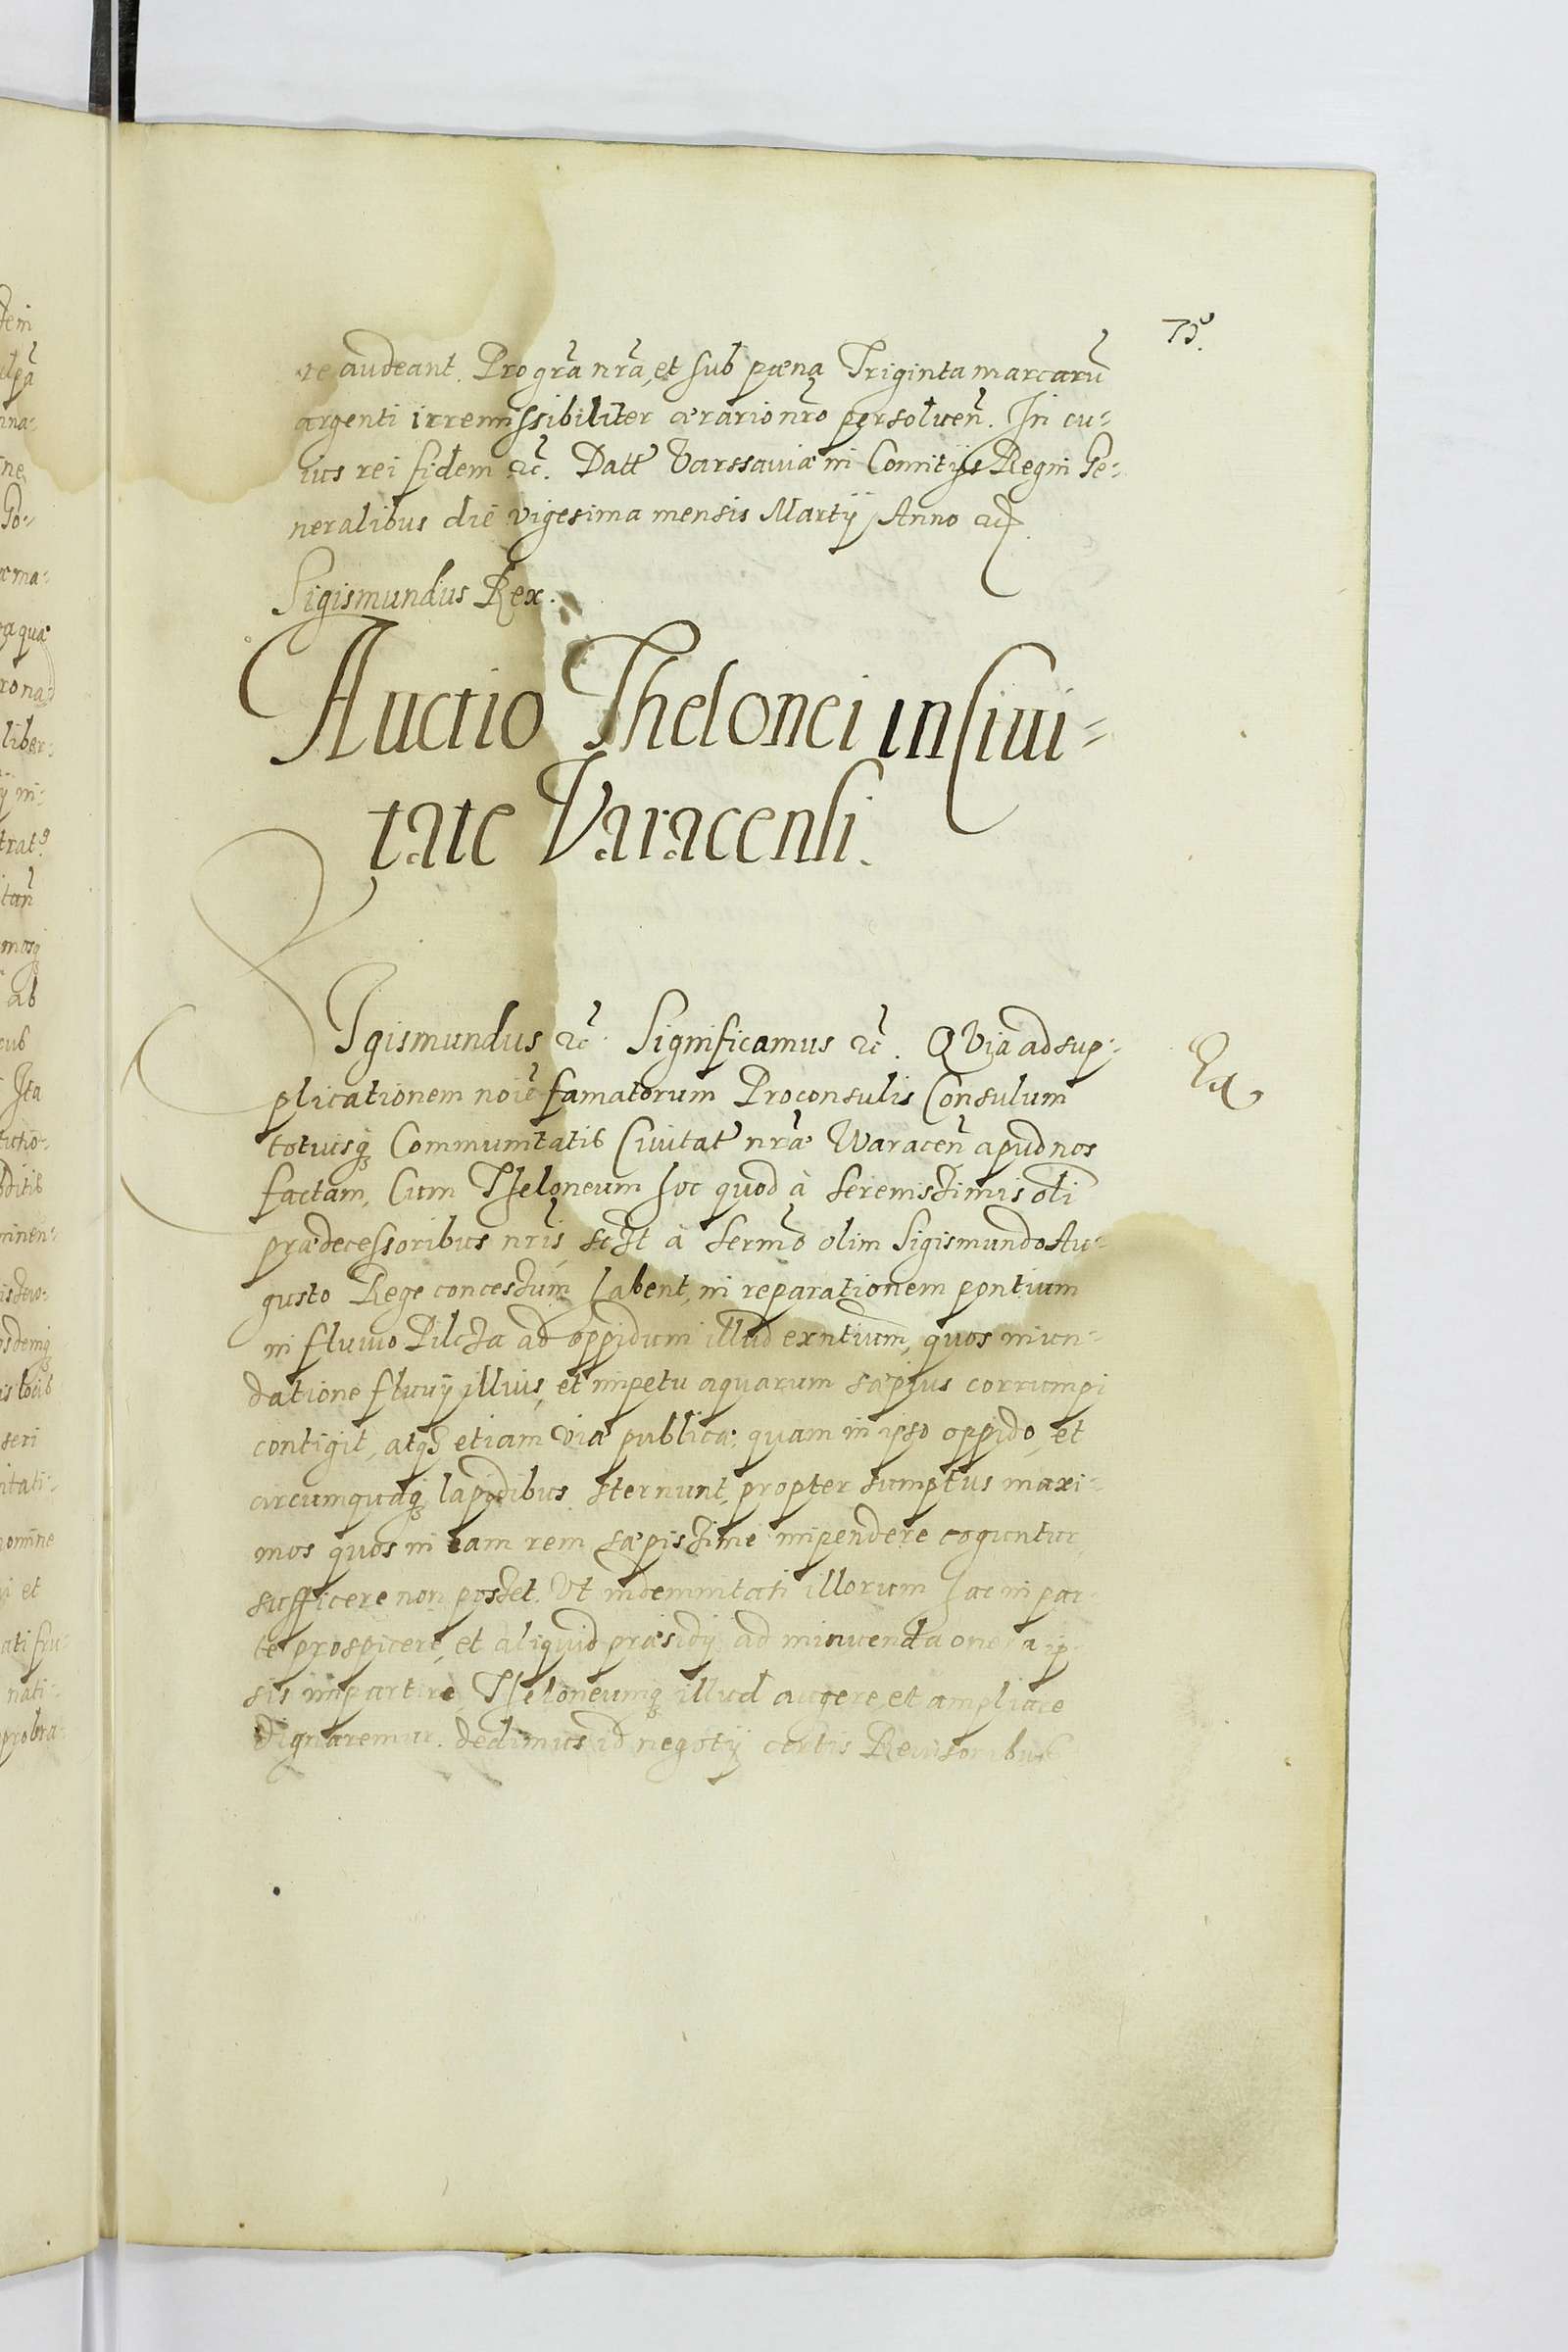 75.
re audeant. Pro gra͂ nra͂, et sub pœna Triginta marcarū
argenti irremissibiliter ærario nr͂o persoluen͂. In cu-
ius rei fidem ꝛc͂. Datt Varssauiæ in Comitijs Regni Ge-
neralibus die vigesima mensis Martij Anno
Sigismundus Rex.
Auctio Thelonei in Ciui-
tate Varacensi.
Sigismundus ꝛc͂. Significamus ꝛc͂. QVia ad sup-
plicationem noie͂ famatorum Proconsulis Consulum
totiusq; Communitatis Ciuitat nræ͂ Waracen͂ apud nos
factam, Cum Theloneum hoc quod à serenissimis oli͂
prædecessoribus nr͂is scilt à serm͂o olim Sigismundo Au-
gusto Rege concessum habent, in reparationem pontium
in fluuio Pilcza ad oppidum illud exn͂tium, quos inun-
datione fluuij illius, et impetu aquarum sæpius corrumpi
contigit, atq; etiam viæ publicæ, quam in ipso oppido, et
circumquaq; lapidibus sternunt, propter sumptus maxi-
mos quos in eam rem sæpissime impendere coguntur
sufficere non posset. Vt indemnitati illorum hac in par-
te prospicere, et aliquid præsidij ad minuenda onera ip-
sis impartire, Theloneumq; illud augere, et ampliare
dignaremur. Dedimus id negotij certis Reuisoribus